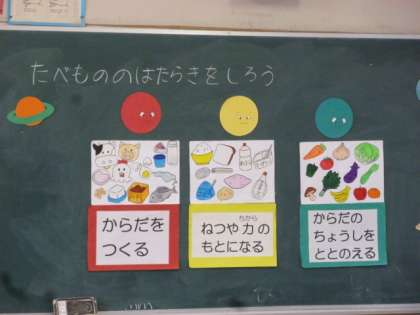 たべもののはたらきをしろう
からだを
つくる
ちから
ねつや力の
もとになる
からだの
ちょうしを
ととのえる